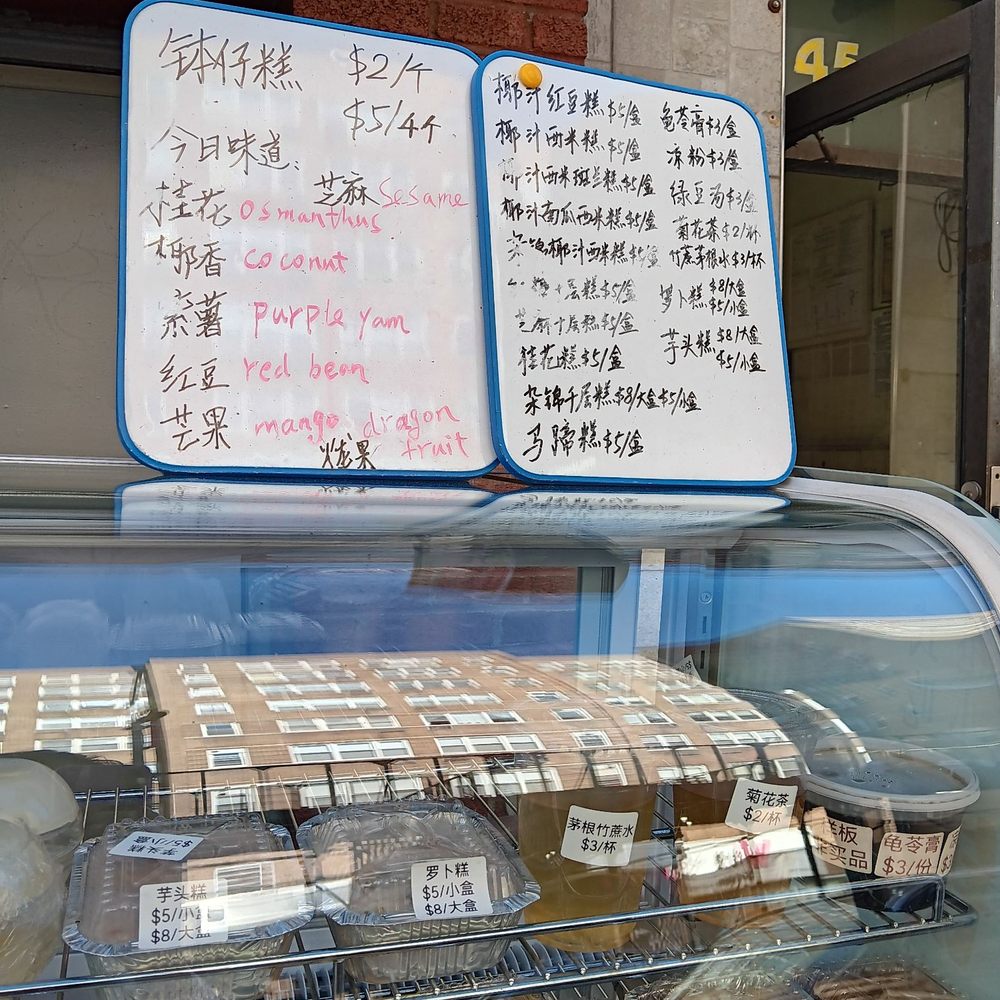 钵仔糕 $2/个
$5/4个
今日味道:
芝麻 Sesame
桂花 Osmanthus
椰香 coconut
紫薯 purple yam
红豆 red bean
芒果 mango dragon
火龙果 fruit
椰汁红豆糕 $5/盒
椰汁西米糕 $5/盒
汁西米斑兰糕 $5/盒
椰汁南瓜西米糕 $5/盒
杂锦椰汁西米糕 $5/盒
千层糕 $5/盒
芝麻千层糕 $5/盒
桂花糕 $5/盒
杂锦千层糕 $8/大盒 $5/小盒
马蹄糕 $5/盒
龟苓膏 $3/盒
凉粉 $3/盒
绿豆汤 $3/盒
菊花茶 $2/杯
竹蔗茅根水 $3/杯
萝卜糕 $8/大盒
$5/小盒
芋头糕 $8/大盒
$5/小盒
45
芋头糕
$5/小盒
芋头糕
$5/小盒
$8/大盒
萝卜糕
$5/小盒
$8/大盒
茅根竹蔗水
$3/杯
菊花茶
$2/杯
样板
非买品
龟苓膏
$3/份